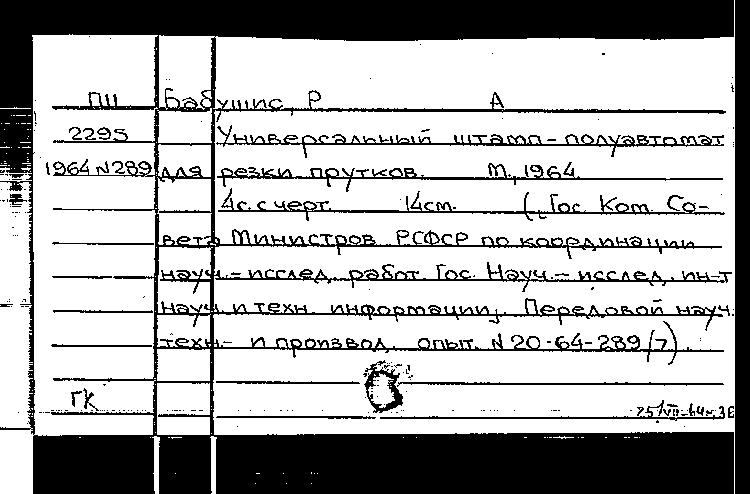 ПШ Бабушис, Р А
2295 Универсальный штамп-полуавтомат
1964 N289 для резки прутков. М., 1964.
4с. с черт. 14см. (Гос. Ком. Со-
вета Министров РСФСР по координации
науч.-исслед. работ. Гос. Науч.-исслед. ин-т
науч. и техн. информации, Передовой науч.
техн.- и производ. опыт. N 20-64-289/7).
ГК